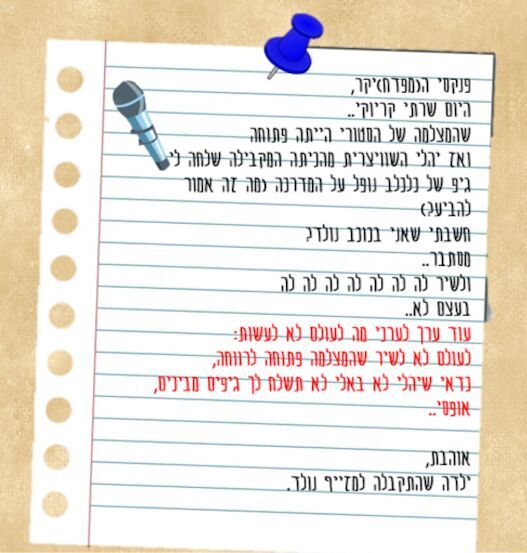 פנקסי ה(מפדח)יקר,
היום שרתי קריוקי..
שהמצלמה של הסטורי הייתה פתוחה
ואז יהלי השוויצרית מהכיתה המקבילה שלחה לי
גיפ של כלבלב נופל על המדרגה (מה זה אמור
להביע?)
חשבתי שאני בכוכב נולד?
מסתבר..
ולשיר לה לה לה לה לה לה לה
בעצם לא..
עוד ערך לערכי מה לעולם לא לעשות:
לעולם לא לשיר שהמצלמה פתוחה לרווחה,
כדאי שיהלי לא באלי לא תשלח לך גיפים מביכים,
אופסי..
אוהבת,
ילדה שהתקבלה למזייף נולד.